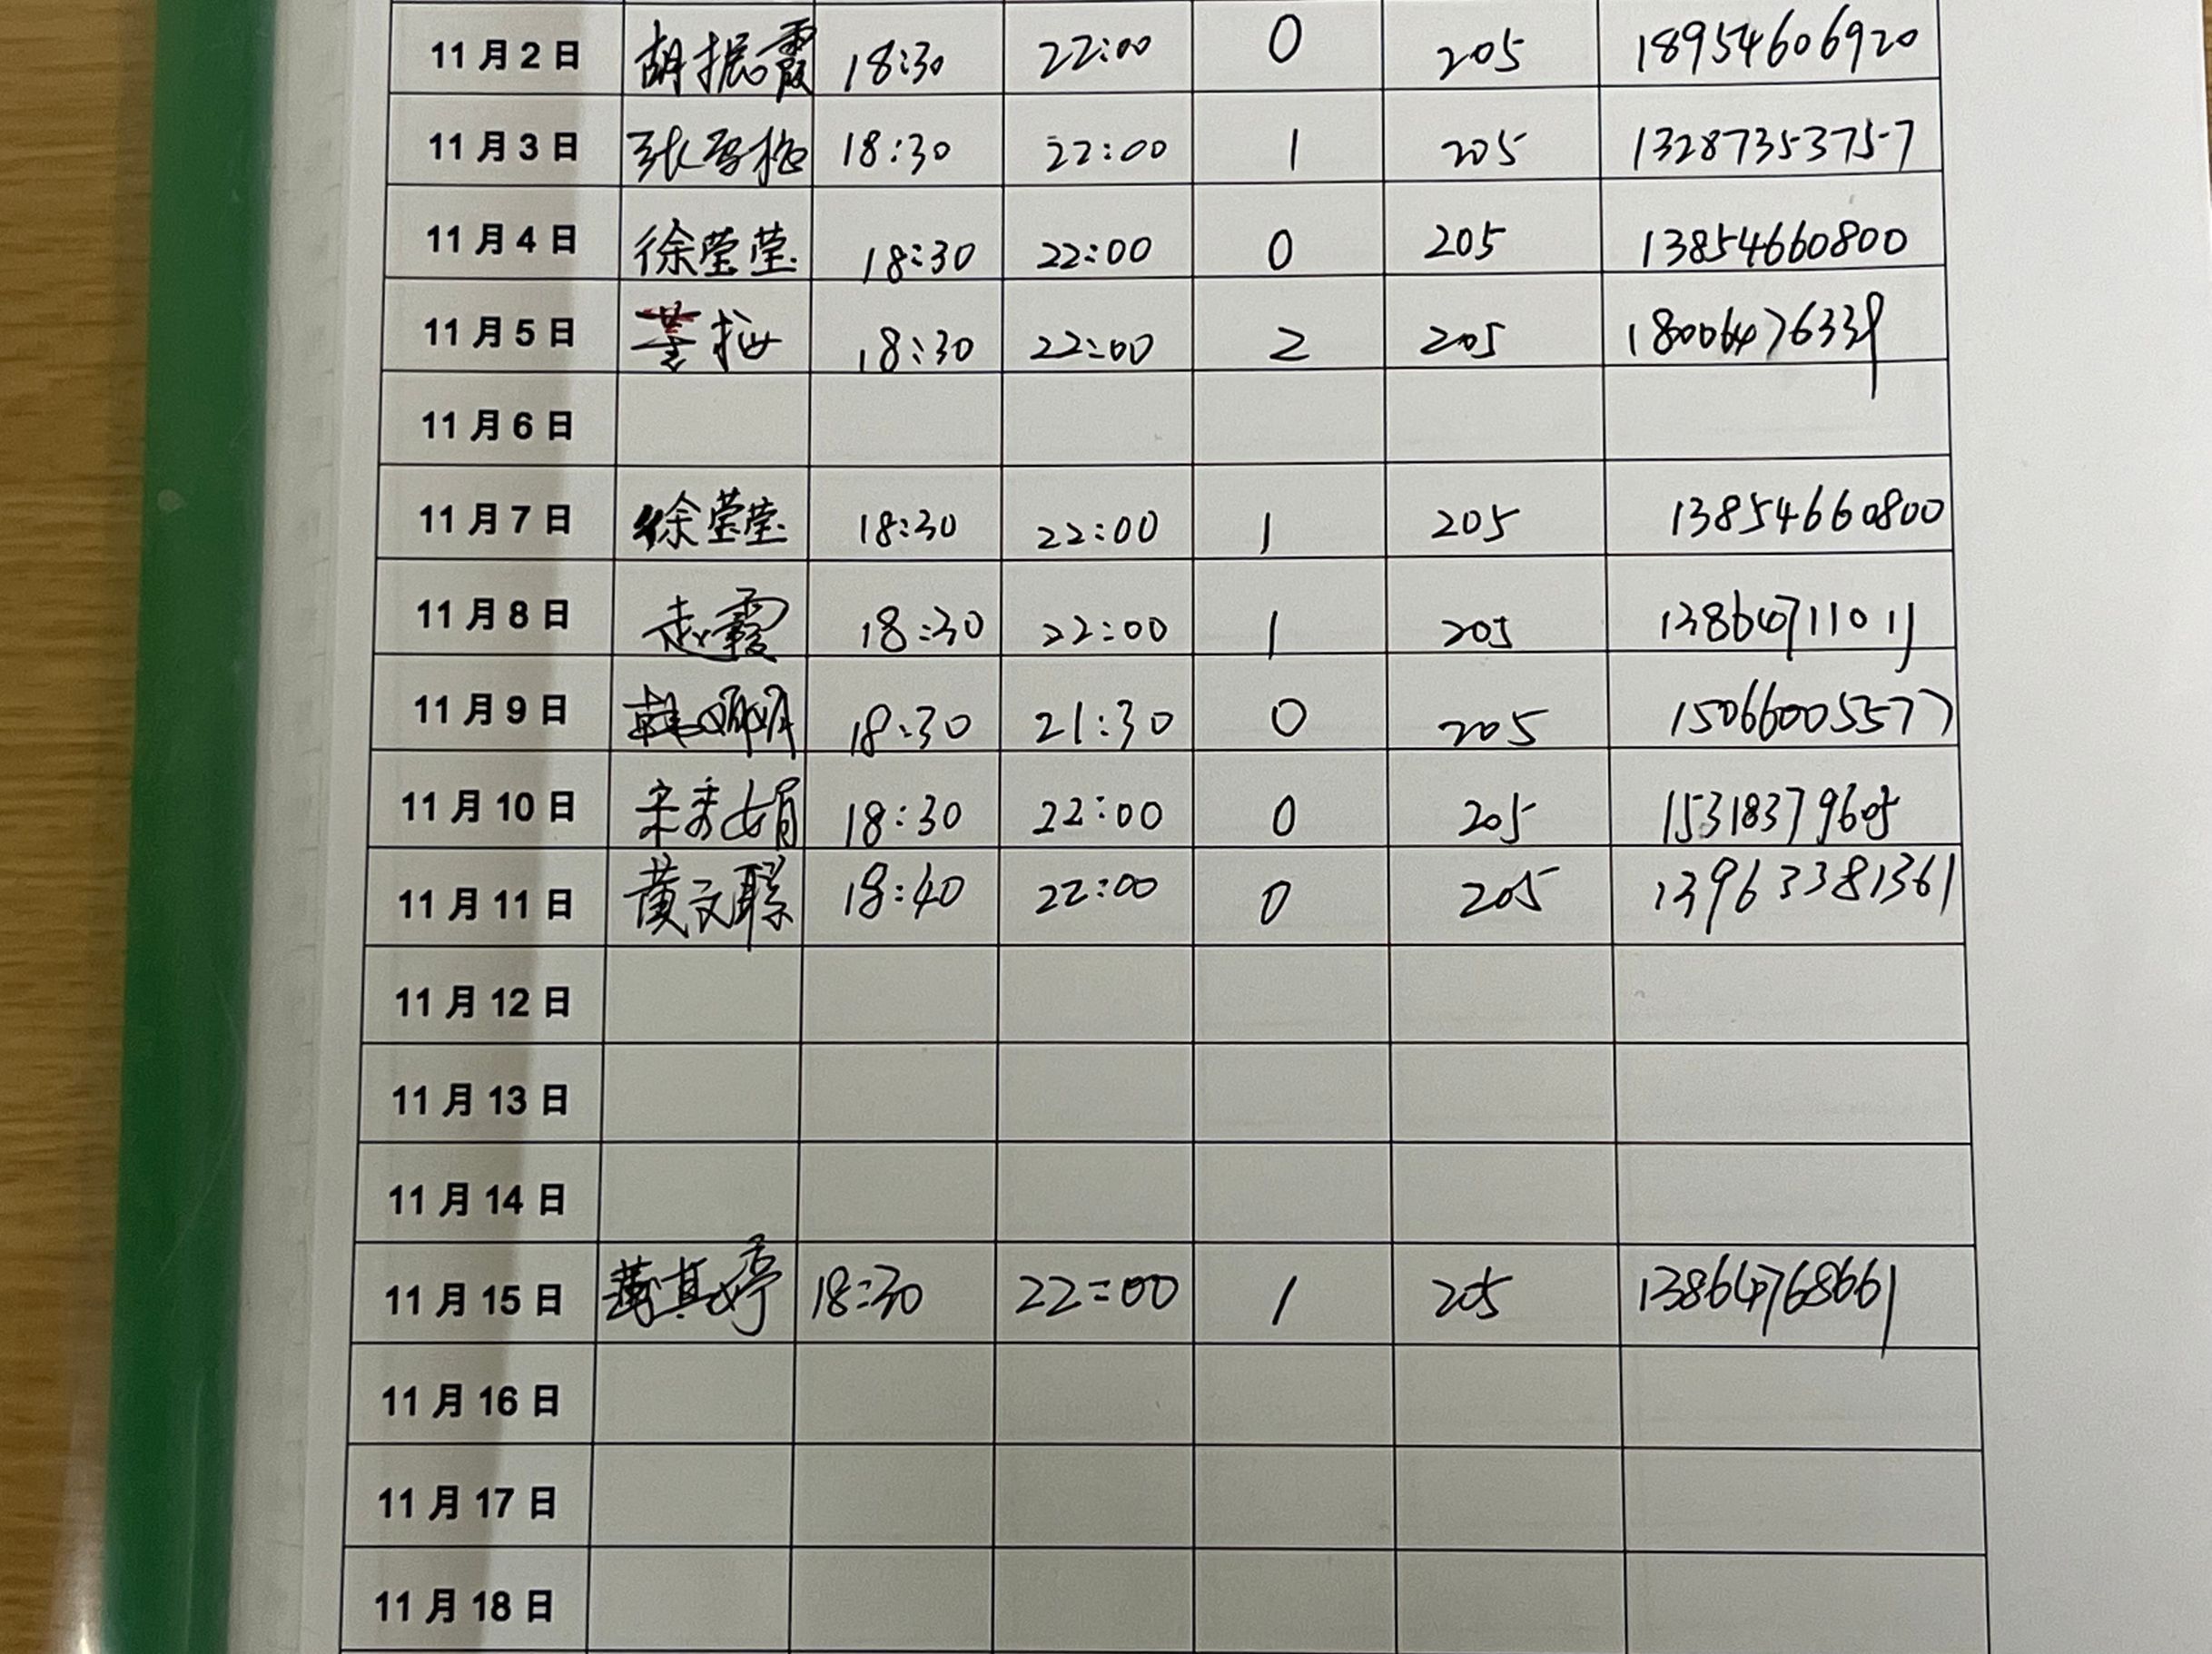 11月2日 胡振霞 18:30 22:00 0 205 18954606920
11月3日 张 梅 18:30 22:00 1 205 13287353757
11月4日 徐莹莹 18:30 22:00 0 205 13854660800
11月5日 董梅 18:30 22:00 2 205 18006476339
11月6日
11月7日 徐莹莹 18:30 22:00 1 205 13854660800
11月8日 赵霞 18:30 22:00 1 205 13864711011
11月9日 韩 18:30 21:30 0 205 15066005577
11月10日 宋秀娟 18:30 22:00 0 205 15318379605
11月11日 黄文聪 18:40 22:00 0 205 13963381361
11月12日
11月13日
11月14日
11月15日 其婷 18:30 22:00 1 205 13864768661
11月16日
11月17日
11月18日